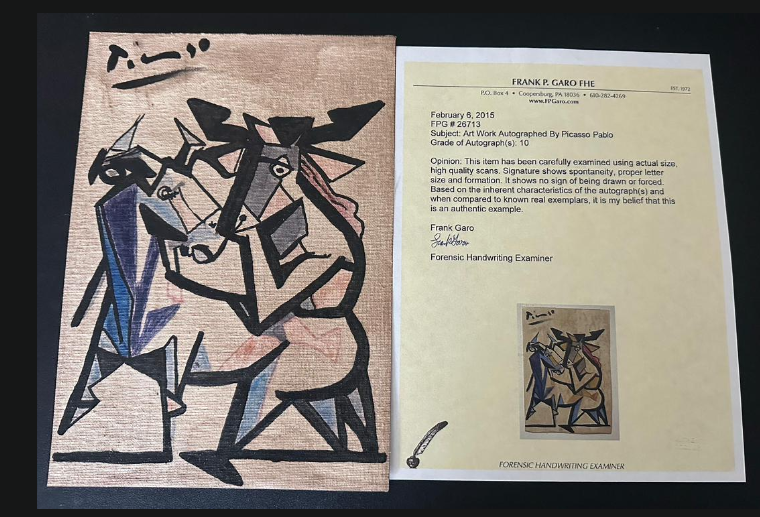 Picasso
FRANK P. GARO FHE
EST. 1972
P.O. Box 4 • Coopersburg, PA 18036 • 610-282-4269
www.FPGaro.com
February 6, 2015
FPG # 26713
Subject: Art Work Autographed By Picasso Pablo
Grade of Autograph(s): 10
Opinion: This item has been carefully examined using actual size,
high quality scans. Signature shows spontaneity, proper letter
size and formation. It shows no sign of being drawn or forced.
Based on the inherent characteristics of the autograph(s) and
when compared to known real exemplars, it is my belief that this
is an authentic example.
Frank Garo
Frank Garo
Forensic Handwriting Examiner
Picasso
FORENSIC HANDWRITING EXAMINER